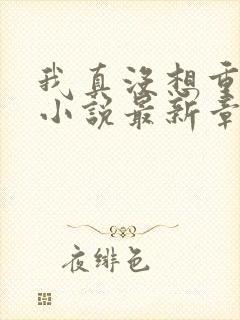 我真没想重
小说最新章
夜绯色